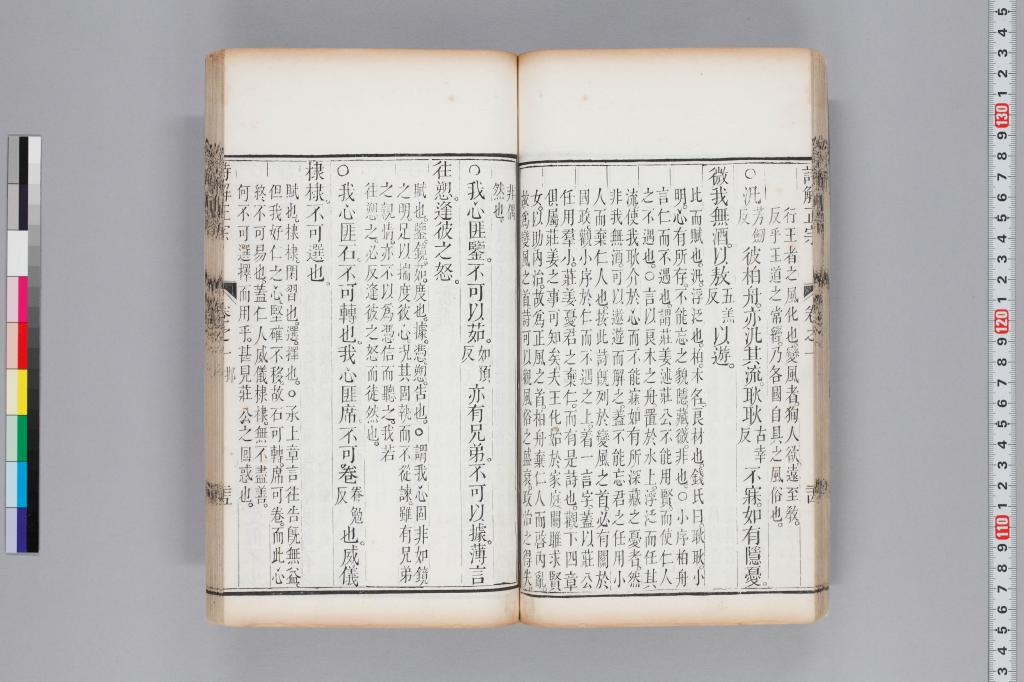 行王者之風化也變風者狥人欲違至教
反乎王道之常經乃各國自具之風俗也
○汎芳劒反彼柏舟亦汎其流耿耿古幸反不寐如有隱憂
微我無酒以敖五羔反以遊
比而賦也汎浮泛也柏木名良材也錢氏曰耿耿小
明心有所存不能忘之貌隱藏微非也○小序柏舟
言仁而不遇也謂莊姜述莊公不能用賢而使仁人
之不遇也○言以良木之舟置於水上浮泛而任其
流使我耿介於心而不能寐如有所深藏之憂者然
非我無酒可以遨遊而解之蓋不能忘君之任用小
人而棄仁人也按此詩旣列於變風之首必有關於
國政觀小序於仁而不遇之上着一言字蓋以莊公
任用羣小莊姜憂君之棄仁而有是詩也觀下四章
俱屬莊姜之事可知矣夫王化始於家庭關雎求賢
女以助內治故爲正風之首柏舟棄仁人而啓內亂
故爲變風之首詩可以觀風俗之盛衰政治之得失
非偶
然也
○我心匪鑒不可以茹如預反亦有兄弟不可以據薄言
往愬逢彼之怒
賦也鑒鏡茹度也據憑愬告也○謂我心固非如鏡
之明足以揣度彼心况其固執而不從諫雖有兄弟
之親情亦不以爲憑信而聽之我若
往愬之必反逢彼之怒而徒然也
○我心匪石不可轉也我心匪席不可卷眷勉反也威儀
棣棣不可選也
賦也棣棣閑習也選擇也○承上章言往告旣無益
但我好仁之心堅確不移故石可轉席可卷而此心
終不可易也蓋仁人威儀棣棣無不盡善
何不可選擇而用乎甚見莊公之囘惑也
詩解正宗 卷之一 邶